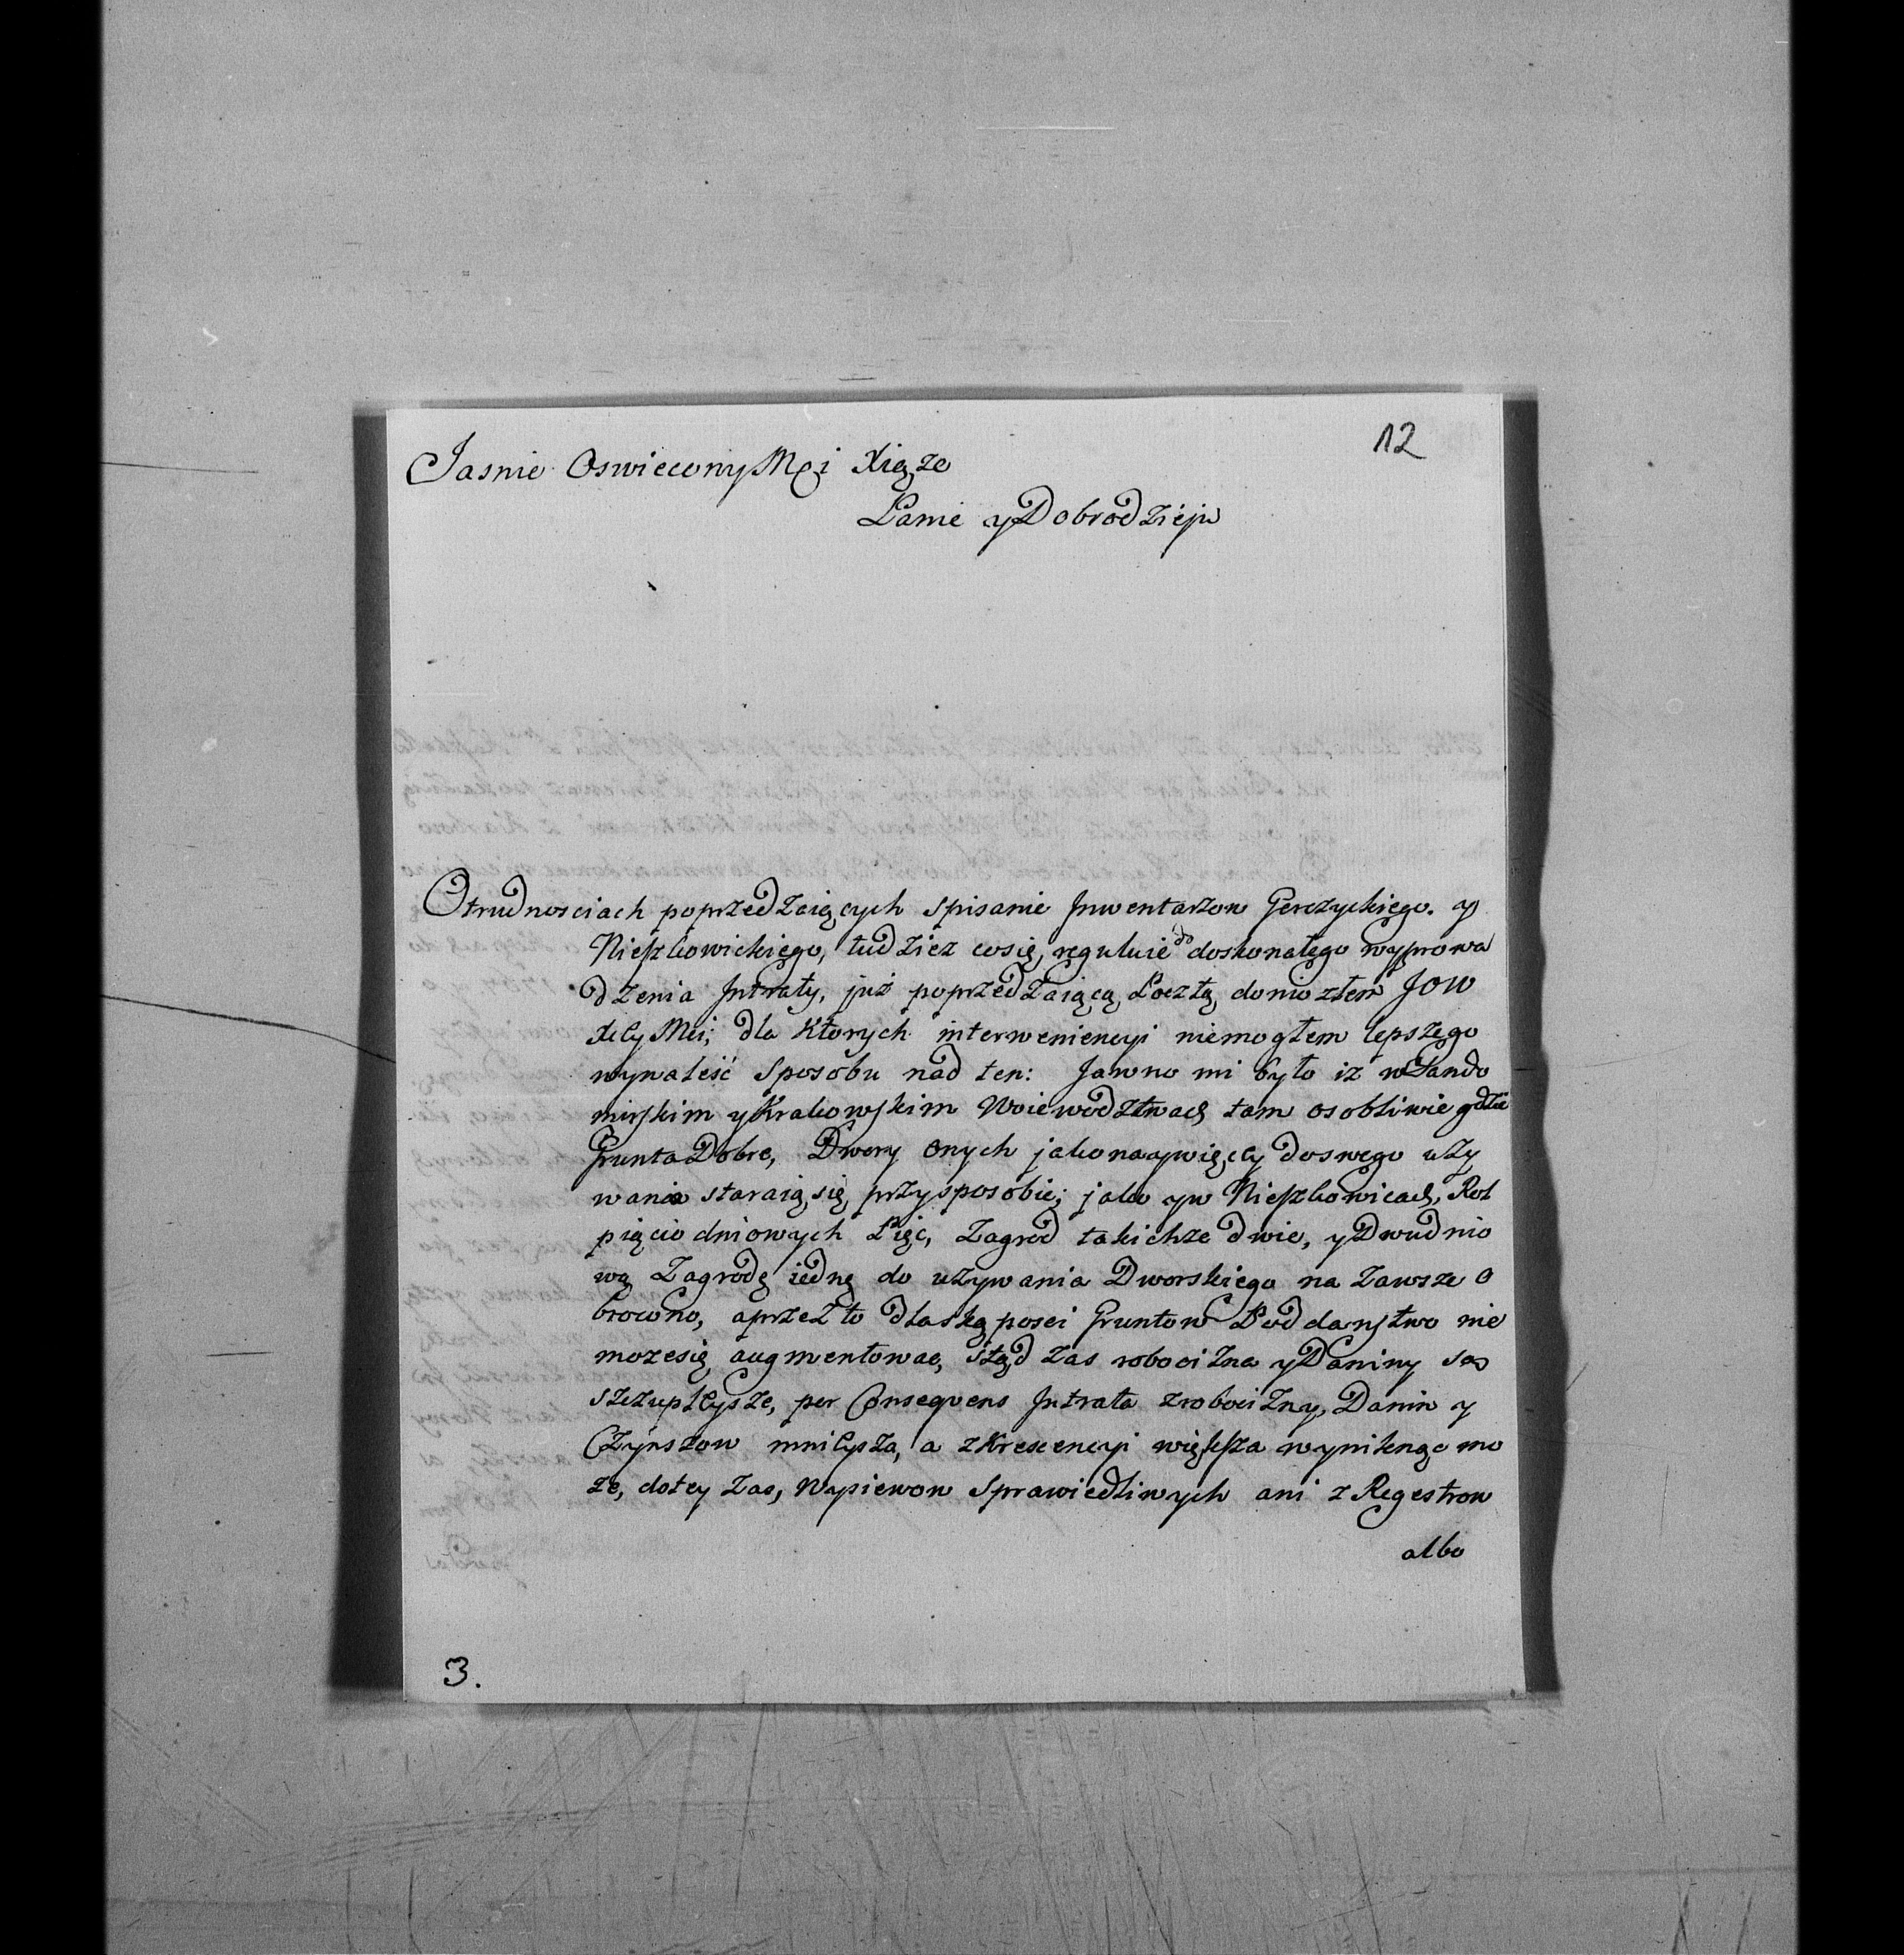 12
Jasnie Oswiecony Mci Xiąze
Panie y Dobrodzieju
O trudnosciach poprzedzaiących spisanie Inwentarzow Gerczyckiego. y
Nieszkowickiego, tudziez co się reguluie do doskonałego wyprowa
dzenia Intraty, już poprzedzaiącą Pocztą doniozłem JOW
XcyMci; dla ktorych interweniencyi niemogłem lepszego
wynaleść sposobu nad ten: Jawno mi było iz w Sando
mirskim y Krakowskim Woiewodztwach tam osobliwie gdzie
Grunta Dobre, Dwory onych jako naywięcy do swego uzy
wania staraią się przysposobic; jako y w Nieszkowicach, Rol
pięciodniowych Pięc, Zagrod takichze dwie, y Dwudnio
wą Zagrodę iednę do uzywania Dworskiego na zawsze o
brocono, a przez to dla skąposci Gruntow Poddanstwo nie
moze się augmentowac, ztąd zas robocizna y Daniny są
szczupleysze, per Consequens Intrata z robocizny, Danin y
Czynszow mnieysza, a z Krescencyi większa wyniknąc mo
ze, do tey zas, Wysiewow sprawiedliwych ani z Regestrow
albo
3.